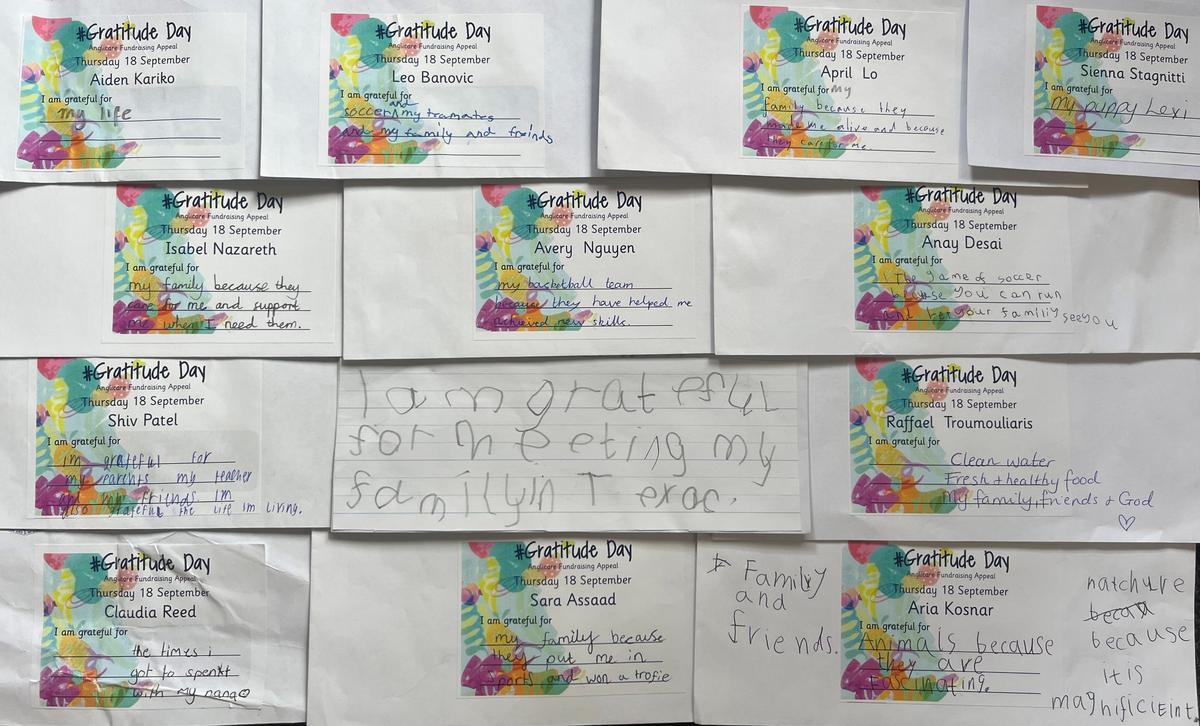 #Gratitude Day
Anglicare Fundraising Appeal
Thursday 18 September
Aiden Kariko
I am grateful for
my life
#Gratitude Day
Anglicare Fundraising Appeal
Thursday 18 September
Leo Banovic
I am grateful for
and
soccer my teamates
and my family and freinds
#Gratitude Day
Anglicare Fundraising Appeal
Thursday 18 September
April Lo
I am grateful for my
family because they
made me alive and because
they care for me.
#Gratitude Day
Anglicare Fundraising Appeal
Thursday 18 September
Sienna Stagnitti
I am grateful for
my puppy Lexi
#Gratitude Day
Anglicare Fundraising Appeal
Thursday 18 September
Isabel Nazareth
I am grateful for
my family because they
care for me and support
me when I need them.
#Gratitude Day
Anglicare Fundraising Appeal
Thursday 18 September
Avery Nguyen
I am grateful for
my basketball team
because they have helped me
achieved new skills.
#Gratitude Day
Anglicare Fundraising Appeal
Thursday 18 September
Anay Desai
I am grateful for
The game of soccer
you can run
and let your family see you
#Gratitude Day
Anglicare Fundraising Appeal
Thursday 18 September
Shiv Patel
I am grateful for
im grateful for
my parents my teacher
and my friends. im
also grateful the life im living.
I am grateful
for meeting my
family in Terac.
#Gratitude Day
Anglicare Fundraising Appeal
Thursday 18 September
Raffael Troumouliaris
I am grateful for
Clean water
Fresh + healthy food
My family, friends + God
♡
#Gratitude Day
Anglicare Fundraising Appeal
Thursday 18 September
Claudia Reed
I am grateful for
the times i
got to spenkt
with my nana
#Gratitude Day
Anglicare Fundraising Appeal
Thursday 18 September
Sara Assaad
I am grateful for
my family because
they put me in
sports and won a trofie
Family
and
friends.
#Gratitude Day
Anglicare Fundraising Appeal
Thursday 18 September
Aria Kosnar
I am grateful for
Animals because
they are
Fascinating.
natchure
becau
because
it is
magnificieint